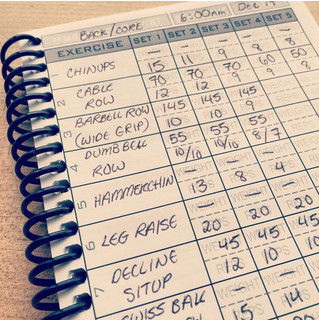 BACK/CORE 6:00am Dec 19
EXERCISE SET 1 SET 2 SET 3 SET 4 SET 5
1 CHINUPS — — — — —
15 11 9 8 8
2 CABLE ROW 70 70 70 70 50
12 12 9 9 8
3 BARBELL ROW (WIDE GRIP) 145 145 145
10 10 9
4 DUMBBELL ROW 55 55 55
10/10 10/10 8/7
5 HAMMERCHIN — — —
13 8 4
6 LEG RAISE — — —
20 20 20
7 DECLINE SITUP 45 45 45
12 10 10
SWISS BALL — — —
15 14